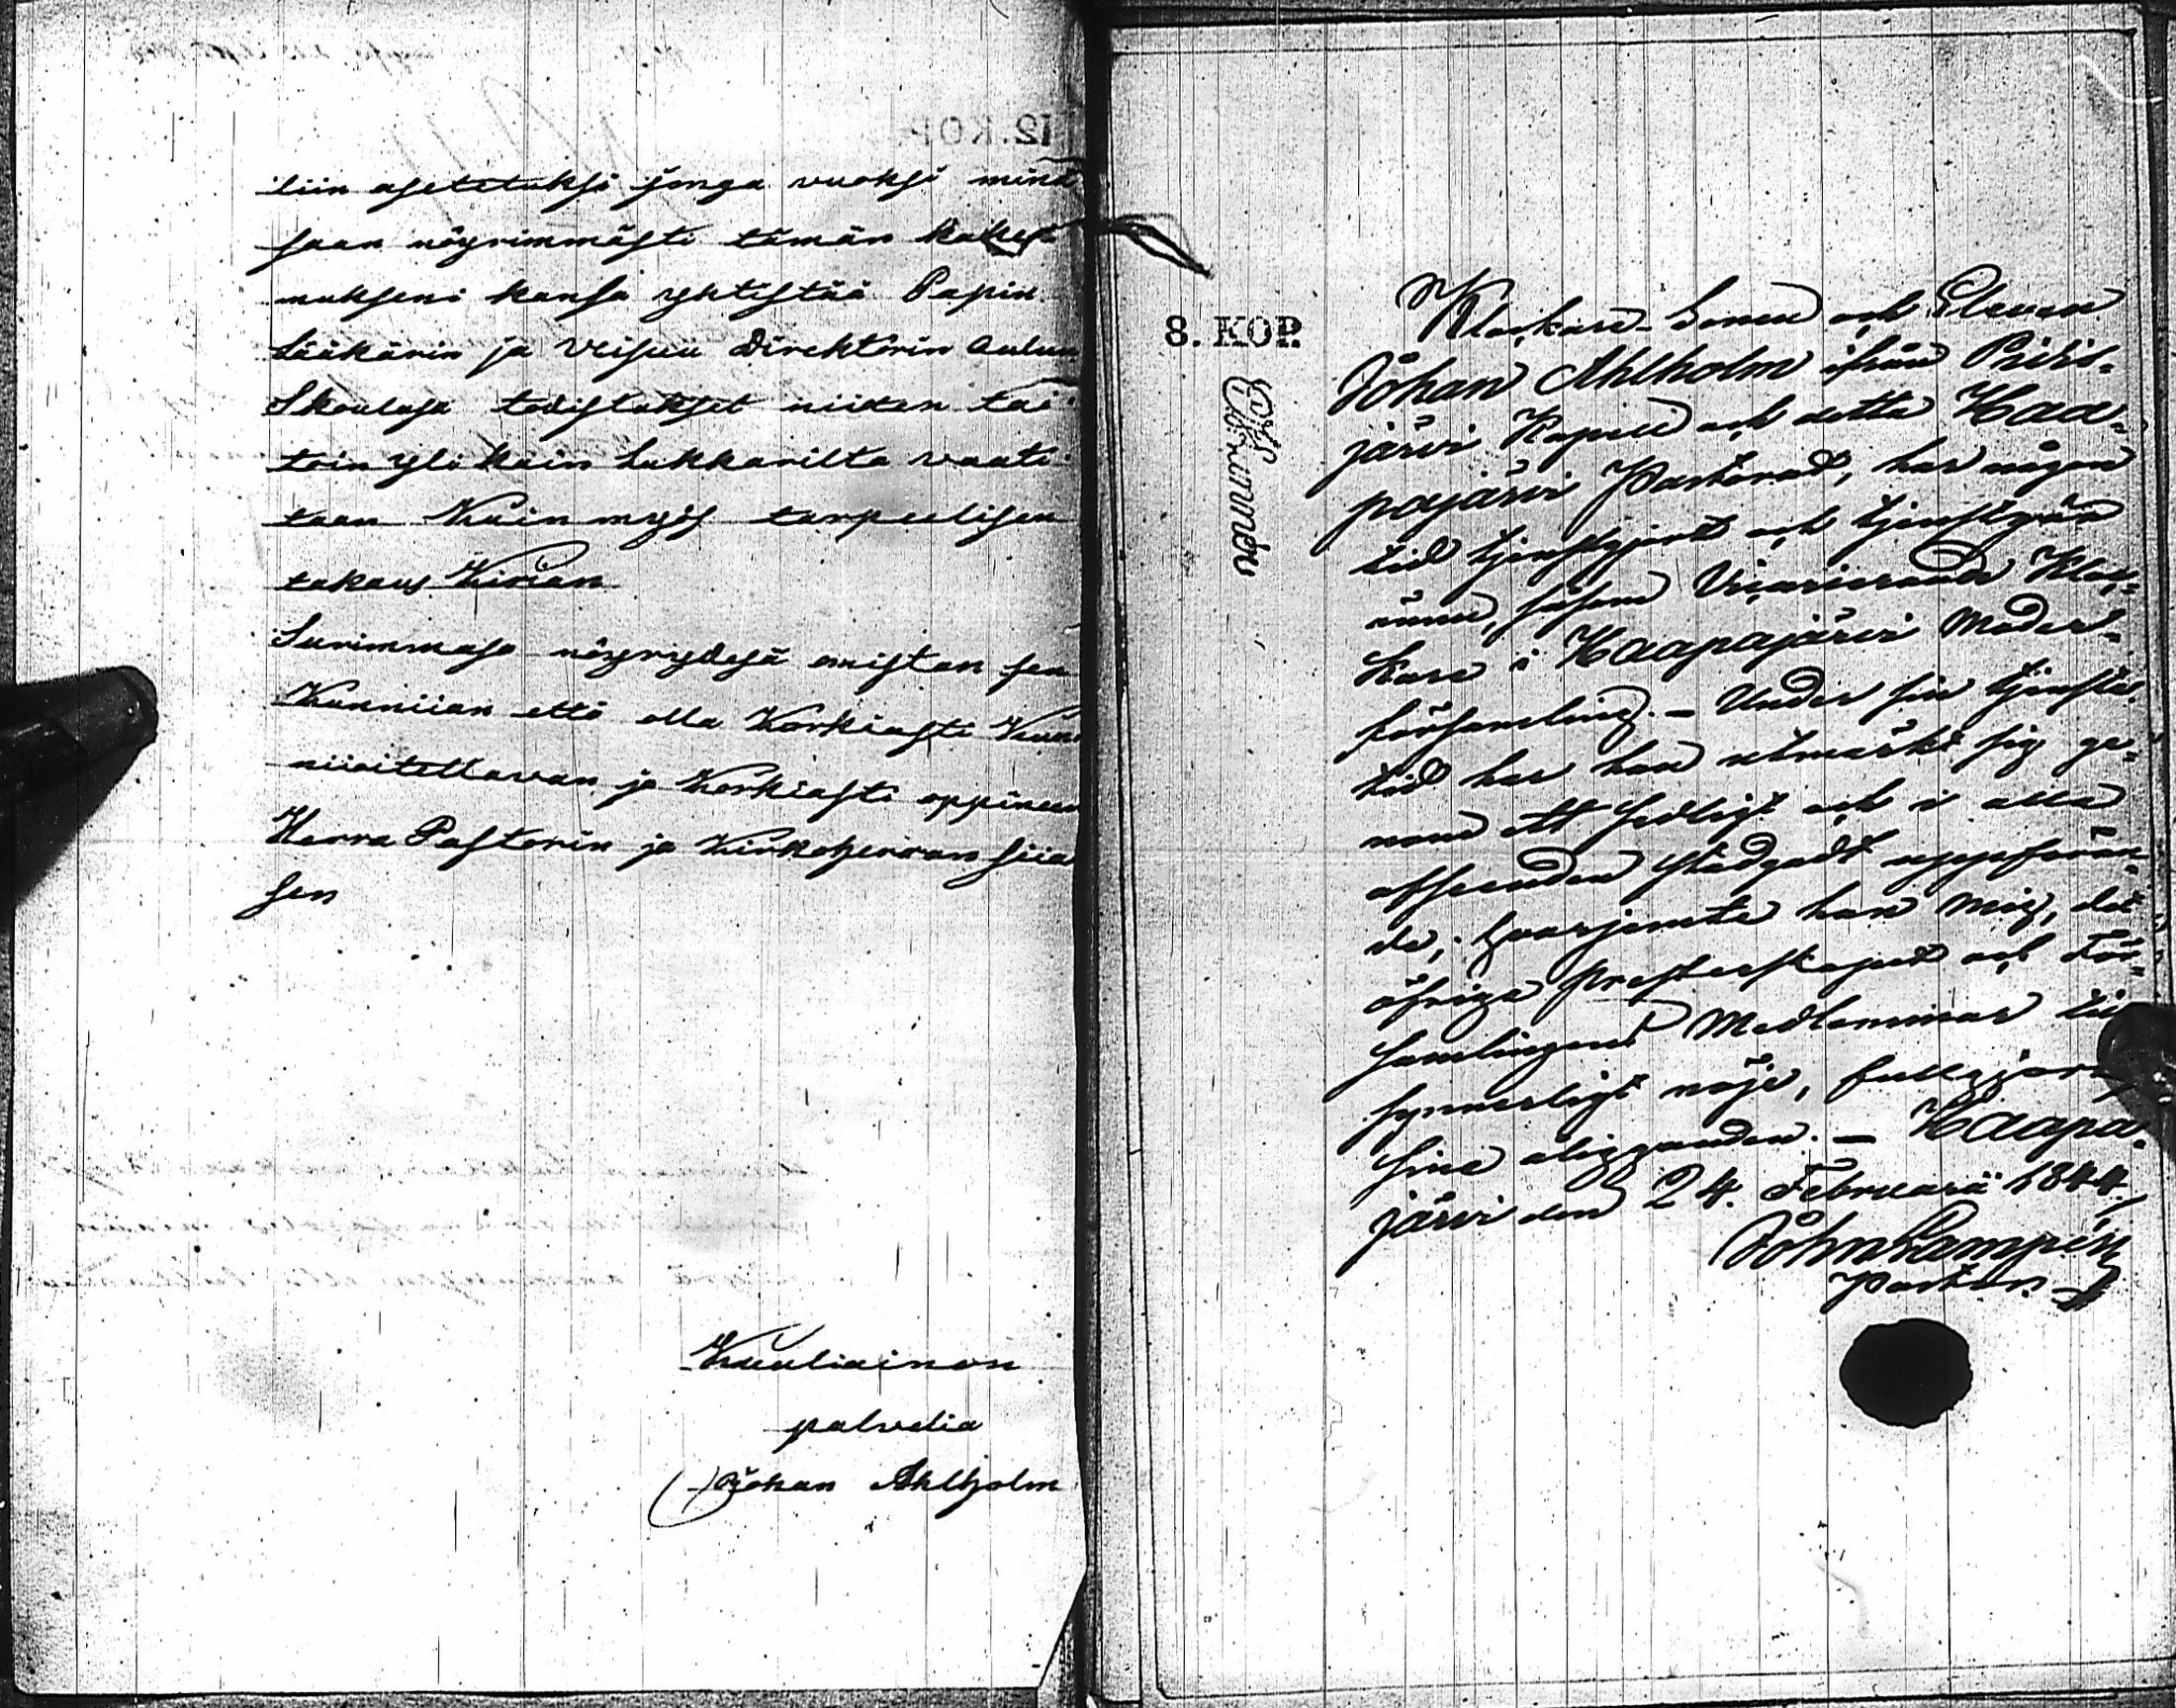 tiin asetetuksi jonga vuoksi minä
saan nöyrimmästi tämän hake
mukseni kansa yhtistää Papin
Lääkärin ja Veisuu Direktörin Oulun
Skoulusa todistukset niitten tai
toin yli kuin Lukkarilta vaati
taan Kuin myös tarpeelisen
takaus Kirian
Surimmasa nöyrydesä omistan sen
Kunniian että olla Korkiasti Kun
niioitettavan ja Korkiasti oppineen
Herra Pastorin ja Kirkoherran siia
sen
Kuuliainen
palvelia
Johan Ahlholm
8. KOP.
Klockare-Sonen och Eleven
Johan Ahlholm ifrån Pidis-
järvi Kapell och detta Haa-
pajärvi Pastorat, har någon
tid tjenstgjort och tjenstgör
ännu, såsom Vicarierande Kloc-
kare i Haapajärvi Moder-
församling. - Under sin tjenste
tid har han utmärkt sig ge-
nom ett sedligt och i alla
afseenden stadgadt uppföran-
de; hvarjemte han mig, det
öfriga presterskapet och För-
samlingens Medlemmar till
synnerligt nöje, fullgjort
sine åligganden. - Haapa-
järvi den 24. Februarii 1844.
Joh Lampén
Pastor.